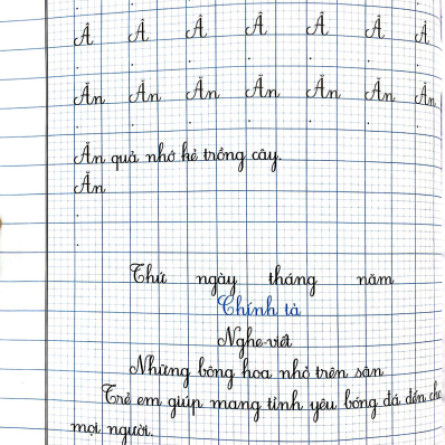 Â Â Â Â Â Â Â
Ăn Ăn Ăn Ăn Ăn Ăn Ăn
Ăn quả nhớ kẻ trồng cây.
Ăn
Thứ ngày tháng năm
Chính tả
Nghe-viết
Những bông hoa nhỏ trên sân
Trẻ em giúp mang tình yêu bóng đá đến cho
mọi người.